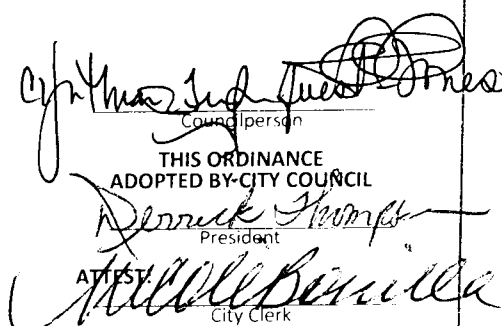 Councilperson
THIS ORDINANCE
ADOPTED BY CITY COUNCIL
Derrick Thompson
President
ATTEST:
Nicole Bonilla
City Clerk